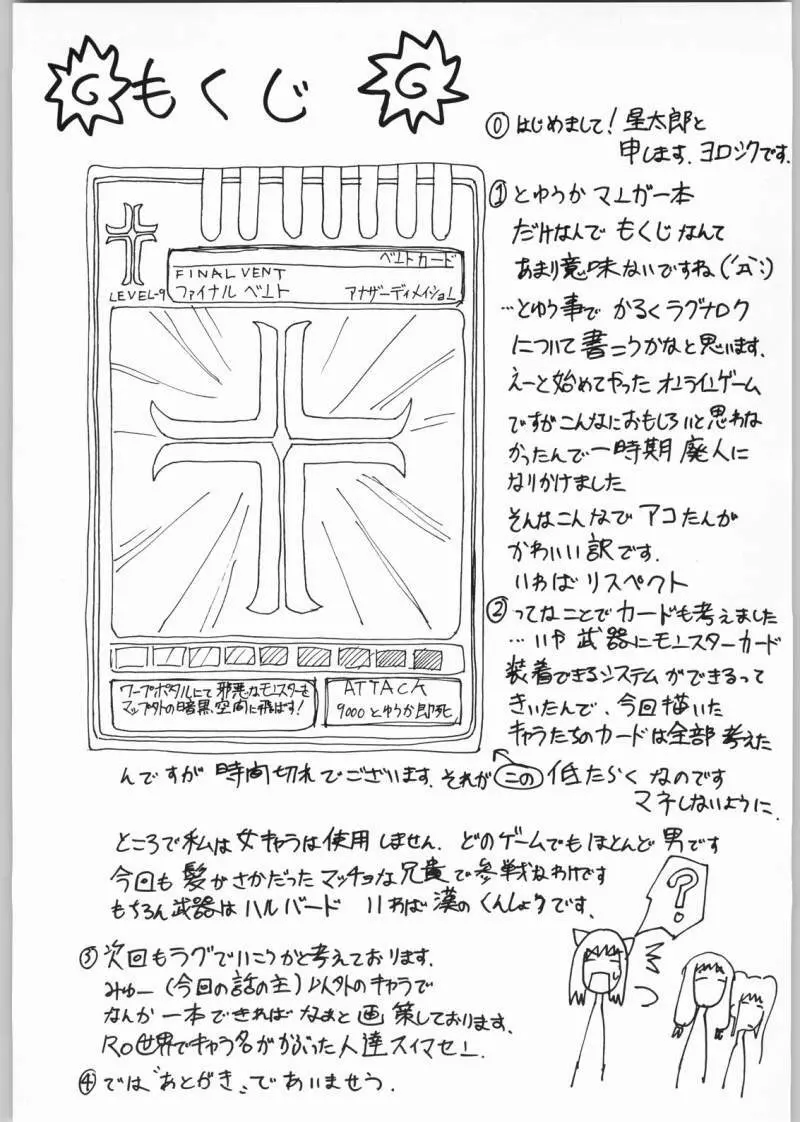 G もくじ G
⓪ はじめまして！星太郎と
申します、ヨロシクです。
① とゆうか マンガ一本
だけなんで もくじなんて
あまり意味ないですね(´д`;)
…とゆう事で かるくラグナロク
について書こうかなと思います。
えーと始めてやったオンラインゲーム
ですがこんなにおもしろいと思わな
かったんで一時期 廃人に
なりかけました
そんなこんなで アコたんが
かわいい訳です。
いわば リスペクト
② ってなことでカードも考えました
…いや 武器にモンスターカード
装着できるシステムができるって
きいたんで、今回描いた
キャラたちのカードは全部 考えた
んですが 時間切れでございます。それが この 低たらく なのです
マネしないように。
LEVEL-9
ベントカード
FINAL VENT
ファイナル ベント アナザーディメイション
ワープポタルにて邪悪なモンスターを
マップ外の暗黒空間に飛ばす！
ATTACK
9000とゆうか即死
ところで私は女キャラは使用しません。どのゲームでもほとんど男です
今回も髪がさかだったマッチョな兄貴で参戦なわけです
もちろん武器はハルバード いわば漢のくんしょうです。
③ 次回もラグでいこうかと考えております。
みゅー(今回の話の主)以外のキャラで
なんか一本できればなぁと画策しております。
RO世界でキャラ名がかぶった人達スイマセン。
？
④ では"あとがき"であいませう.